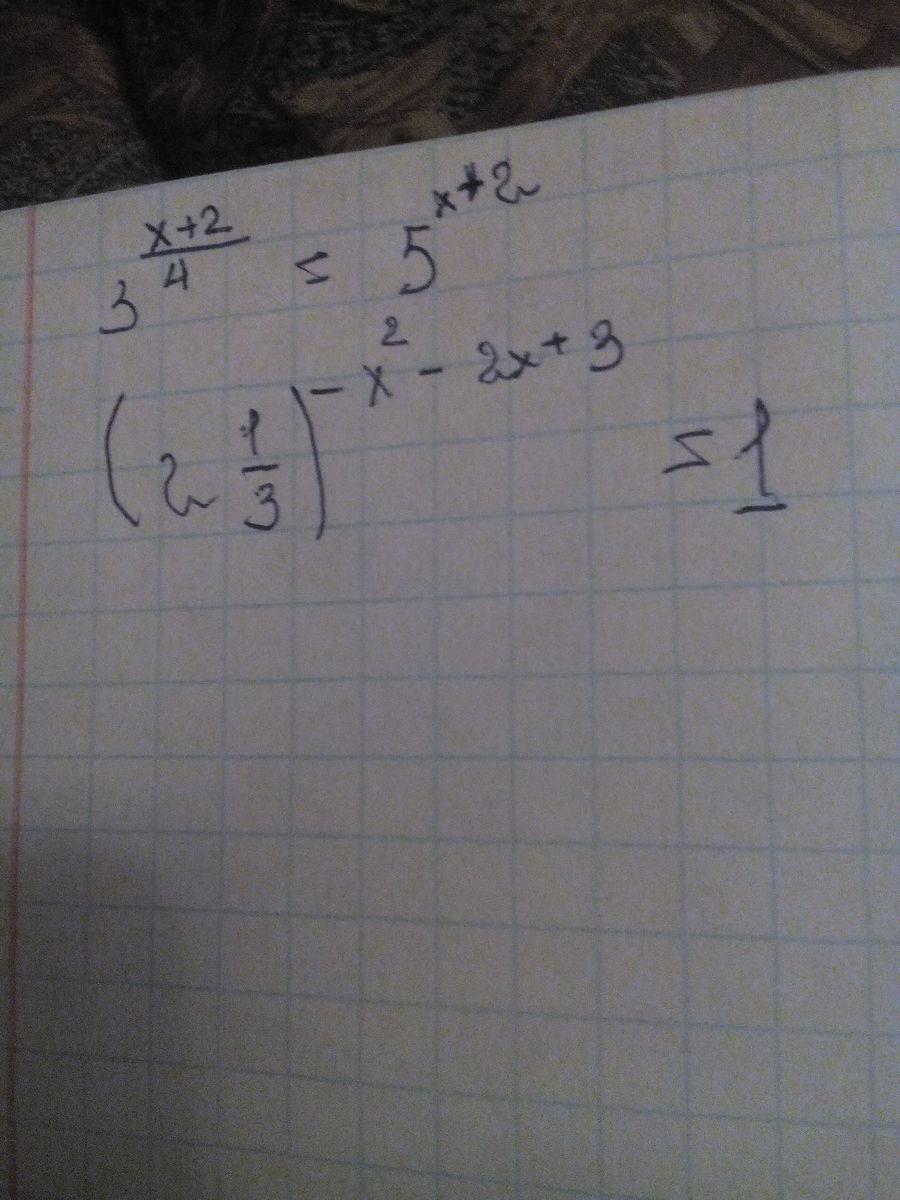 3^{\frac{x+2}{4}} = 5^{x+2}
(2\frac{1}{3})^{-x^2-2x+3} = 1